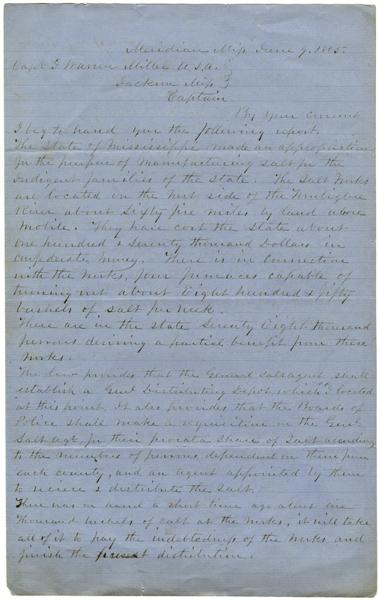 Meridian Miss June 9. 1865.
Capt J Warren Miller U.S.A.
Jackson Miss
Captain
By your
I beg to hand you the following report.
The State of Mississippi made an appropriation
for the purpose of manufacturing salt for the
Indigent families of the State. The Salt Works
are located on the West side of the Tombigbee
River about Sixty five miles by land above
Mobile. They have cost the State about
one hundred & Seventy thousand Dollars in
confederate money. There is in connection
with the Works, four furnaces capable of
turning out about Eight hundred & fifty
bushels of salt per week.
There are in the state Seventy Eight thousand
persons deriving a partial benefit from these
Works.
The law provides that the General salt agent shall
establish a Genl Distributing Depot, which I located
at this point. It also provides that the Boards of
Police shall make a requisition on the Genl
Salt agt for their prorata share of Salt according
to the numbers of persons dependent on them from
each county, and an agent appointed by them
to recieve & distribute the salt.
There was on hand a short time ago about five
thousand bushels of salt at the Works, it will take
all of it to pay the indebtedness of the Works and
finish the present distribution.